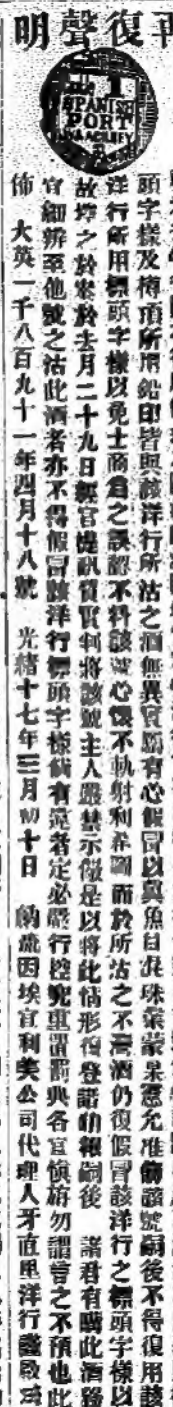 再復聲明
SPANISH
PORT
頭字樣及樽頂所用鉛印皆與該洋行所沽之酒無異實屬有心假冒以真魚目混珠業蒙臬憲允准飭該號嗣後不得復用該
洋行所用標頭字樣以免士商為之誤認不料該號心懷不軌射利希圖而於所沽之不酒仍復假冒該洋行之標頭字樣以
故控之於案於去月二十九日經官提訊質實判將該號主人嚴禁示儆是以將此情形復登諸報嗣後 諸君有購此酒務
宜細辨至他號之沽此酒者亦不得假冒該洋行標頭字樣倘有違者定必嚴行控究重置罰典各宜慎旃勿謂言之不預也此
佈 大英一千八百九十一年四月十八號 光緒十七年三月初十日 因埃宜利美公司代理人牙直里洋行謹啟